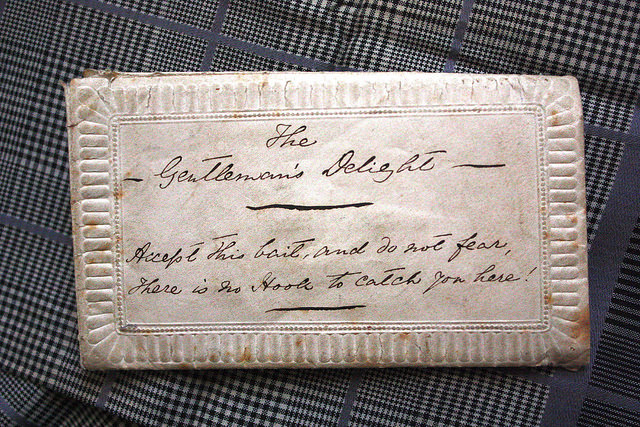 The
- Gentleman's Delight —
Accept this bait, and do not fear,
There is no Hook to catch you here!